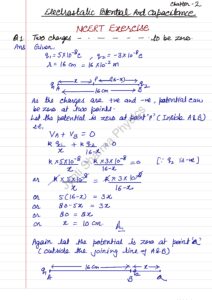 Chapter-2
Electrostatic Potential And Capacitance
NCERT Exercise
Q.1 Two charges - - - - - - - - to be zero.
Ans Given
q₁ = 5×10⁻⁸C , q₂ = -3×10⁻⁸C
r = 16 cm = 16×10⁻² m
q₁ P (16-x) q₂
A x B
16cm
As the charges are +ve and -ve, potential can
be zero at two points.
Let the potential is zero at point 'P' (Inside A&B)
so,
V_A + V_B = 0
k q₁/x + k q₂/16-x = 0
k × 5×10⁻⁸/x - k × 3×10⁻⁸/16-x [∵ q₂ is -ve]
or k × 5×10⁻⁸/x = k × 3×10⁻⁸/16-x
or 5(16-x) = 3x
or 80-5x = 3x
or 80 = 8x
or x = 10 cm
Again let the potential is zero at point 'Q'
(outside the joining line of A&B)
16cm x
q₁ A B q₂ Q